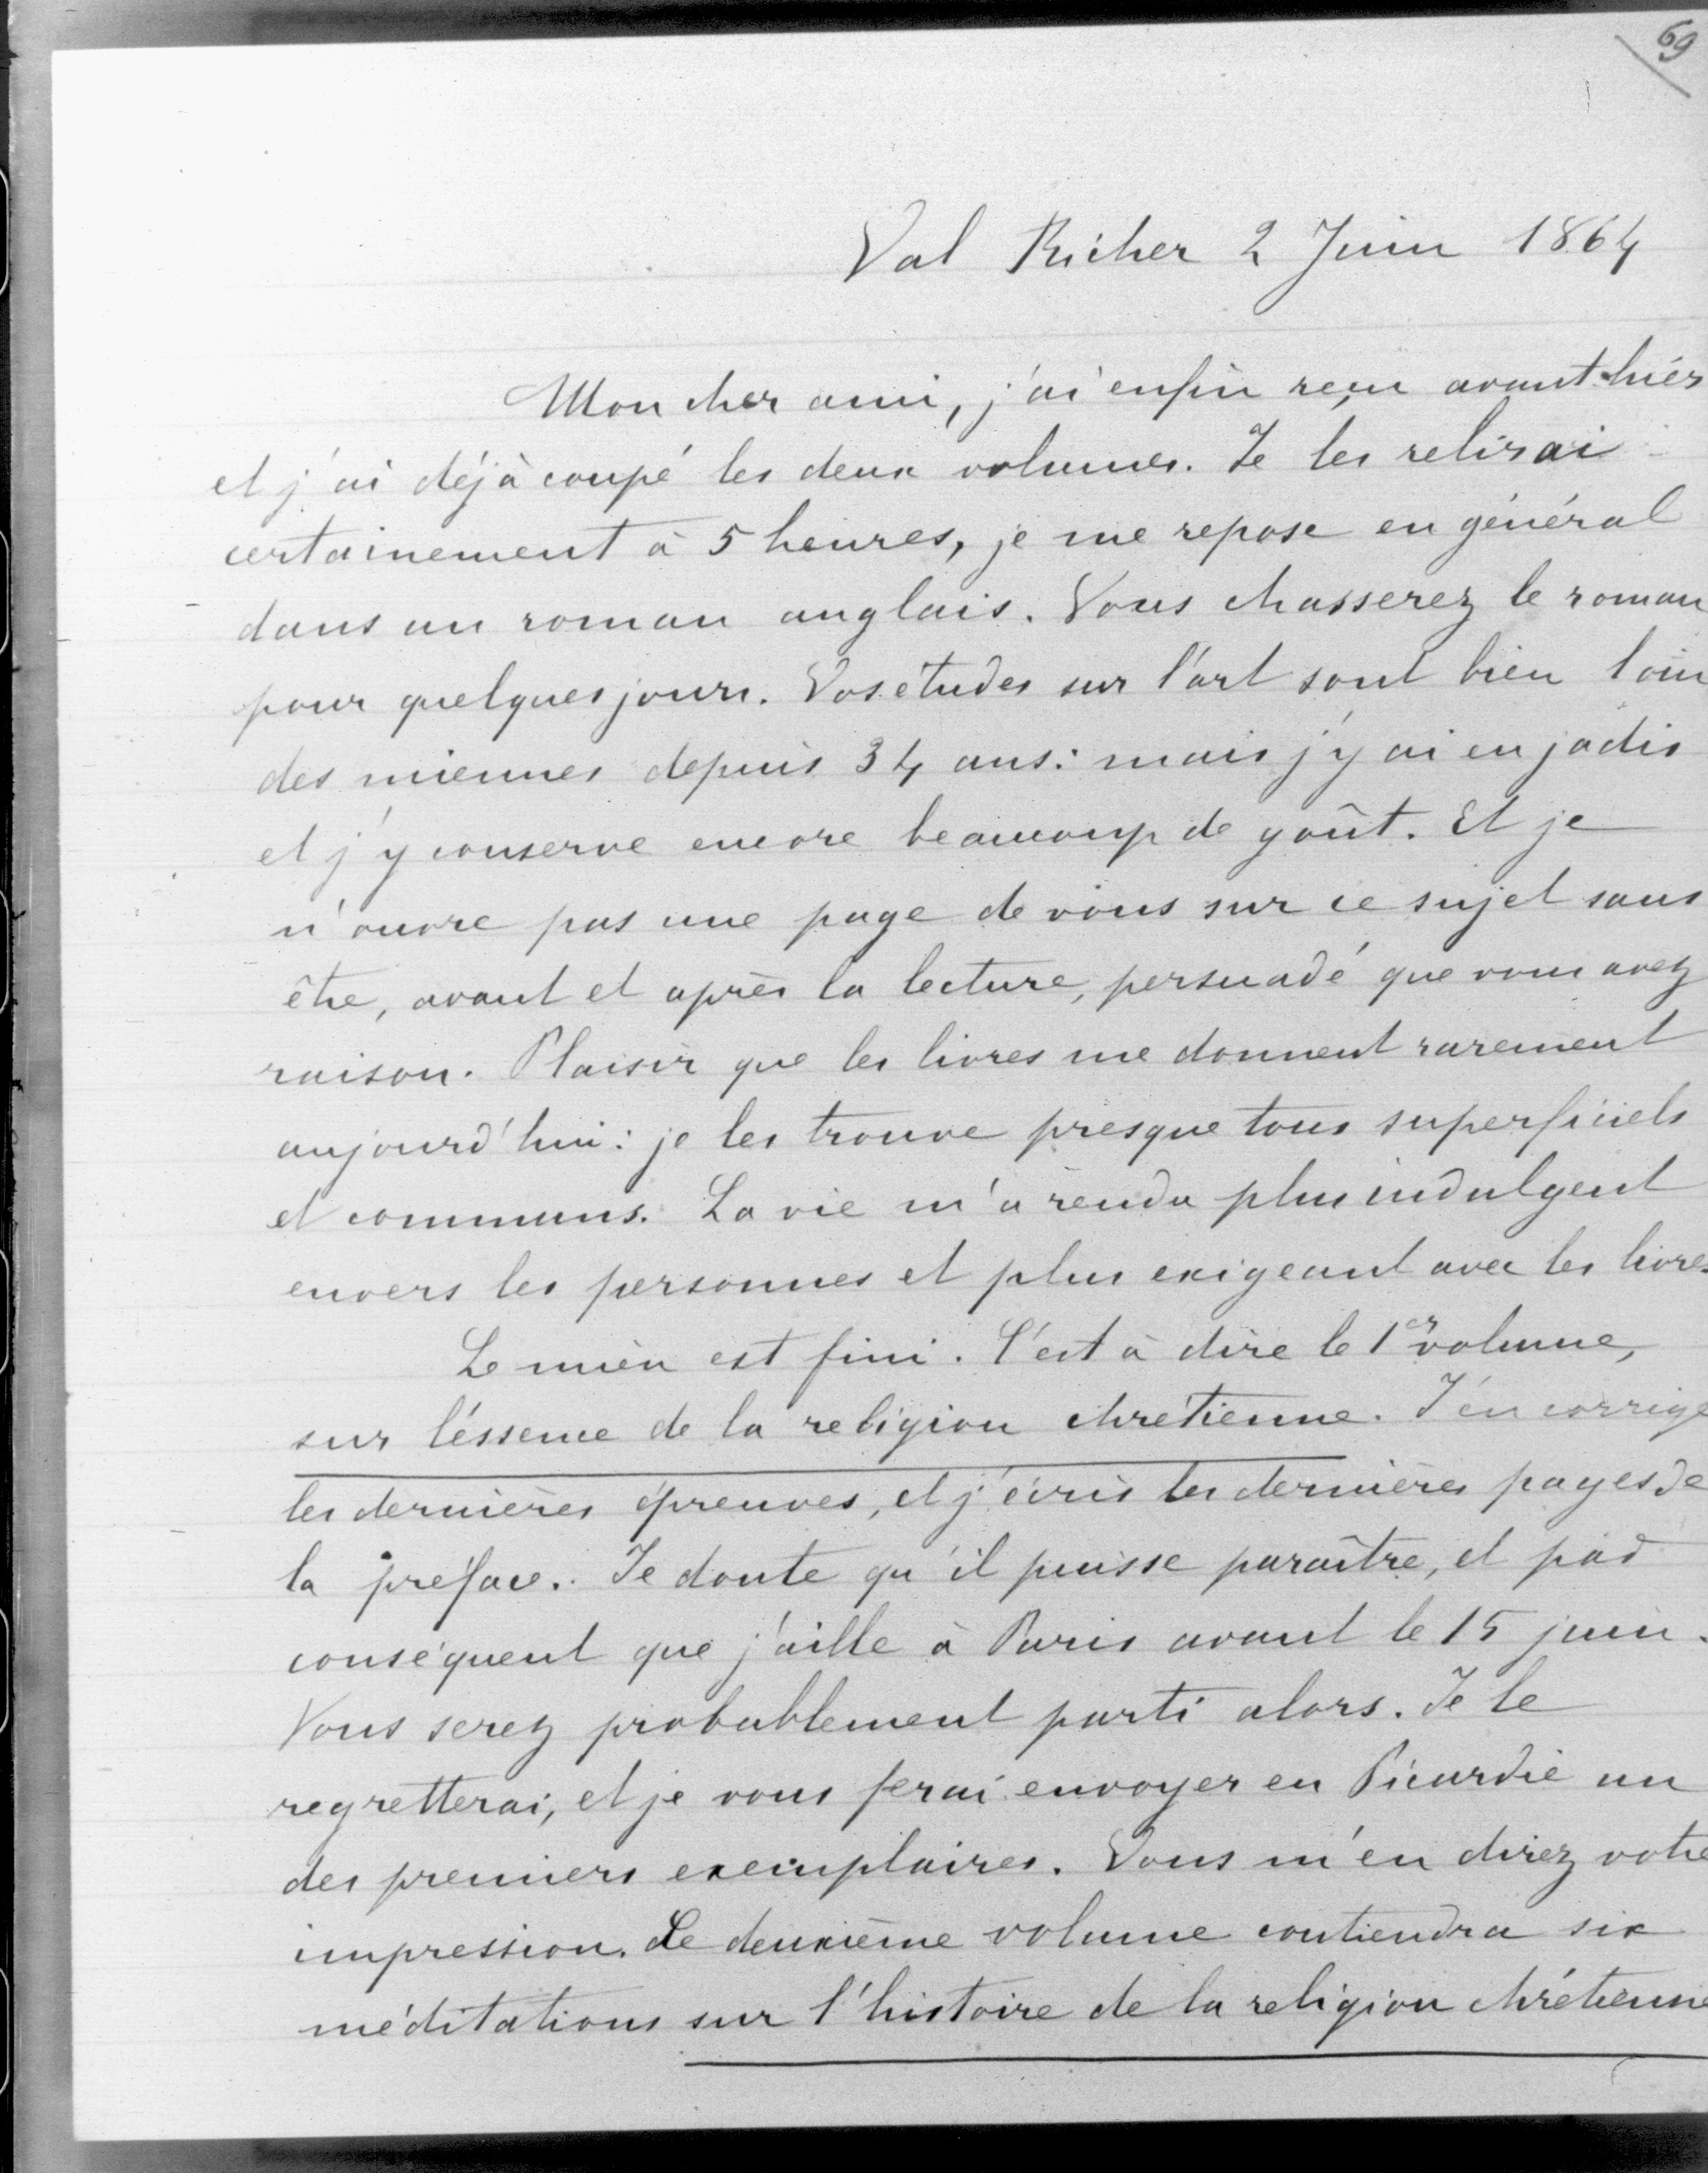 69
Val Richer 2 Juin 1864
Mon cher ami, j'ai enfin reçu avant-hier
et j'ai déjà coupé les deux volumes. Je les relirai
certainement à 5 heures, je me repose en général
dans un roman anglais. Vous chasserez le roman
pour quelques jours. Vos études sur l'art sont bien loin
des miennes depuis 34 ans : mais j'y ai eu jadis
et j'y conserve encore beaucoup de goût. Et je
n'ouvre pas une page de vous sur ce sujet sans
être, avant et après la lecture, persuadé que vous avez
raison. Plaisir que les livres me donnent rarement
aujourd'hui : je les trouve presque tous superficiels
et communs. La vie m'a rendu plus indulgent
envers les personnes et plus exigeant avec les livres.
Le mien est fini. C'est à dire le 1er volume,
sur l'éssence de la religion chrétienne. J'en corrige
les dernières épreuves, et j'écris les dernières pages de
la préface. Je doute qu'il puisse paraître, et par
conséquent que j'aille à Paris avant le 15 juin.
Vous serez probablement parti alors. Je le
regretterai, et je vous ferai envoyer en Picardie un
des premiers exemplaires. Vous m'en direz votre
impression. Le deuxième volume contiendra six
méditations sur l'histoire de la religion chrétienne